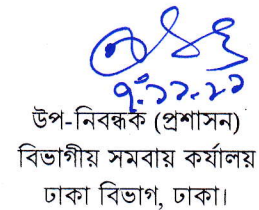 উপ-নিবন্ধক (প্রশাসন)
বিভাগীয় সমবায় কার্যালয়
ঢাকা বিভাগ, ঢাকা।